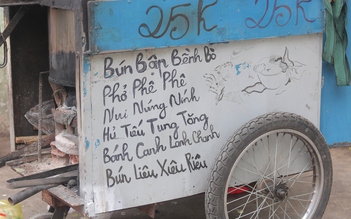 25K 25K
Bún Bập Bềnh Bò
Phở Phê Phê
Nui Núng Nính
Hủ Tíu Tung Tăng
Bánh Canh Lanh Chanh
Bún Liêu Xiêu Riêu